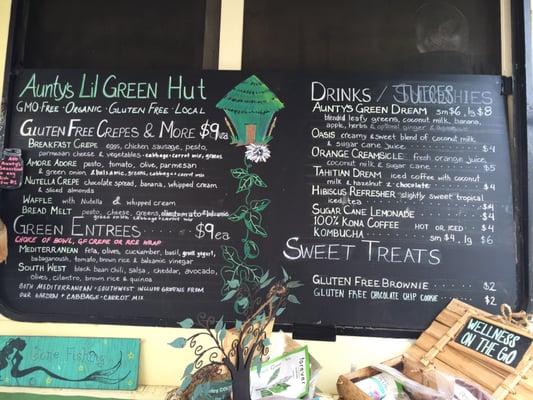 Auntys Lil Green Hut
GMO-Free · Organic · Gluten Free · Local
Gluten Free Crepes & More $9ea
Breakfast Crepe eggs, chicken sausage, pesto,
parmesan cheese & vegetables + cabbage + carrot mix, greens
Amore Adore pesto, tomato, olive, parmesan
& green onion & balsamic, greens, cabbage + carrot mix
Nutella Crepe chocolate spread, banana, whipped cream
& sliced almonds
Waffle with Nutella & whipped cream
Bread Melt pesto, cheese, greens,
Green Entrees $9ea
Choice of bowl, GF crepe or rice wrap
Mediterranean feta, olives, cucumber, basil, greek yogurt,
babaganoush, tomato, brown rice & balsamic vinegar
South West black bean chili, salsa, cheddar, avocado,
olives, cilantro, brown rice & quinoa
Both Mediterranean + Southwest include greens from
our garden + cabbage-carrot mix
Drinks /
Auntys Green Dream sm $6, lg $8
blended leafy greens, coconut milk, banana,
apple, herbs & optional ginger &
Oasis creamy & sweet blend of coconut milk
& sugar cane juice $4
Orange Creamsicle fresh orange juice,
coconut milk & sugar cane $5
Tahitian Dream iced coffee with coconut
milk & hazelnut & chocolate $4
Hibiscus Refresher slightly sweet tropical
iced tea $4
Sugar Cane Lemonade $4
100% Kona Coffee hot or iced $4
Kombucha sm $4, lg $6
Sweet Treats
Gluten Free Brownie $2
Gluten Free Chocolate Chip Cookie $2
Gone Fishing
Wellness
on the go